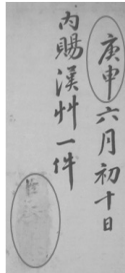 庚申六月初十日
內賜漢艸一件